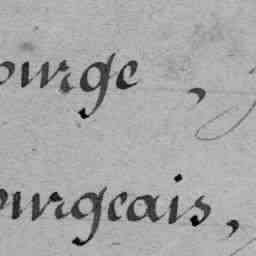 ourge,
ourgeais,